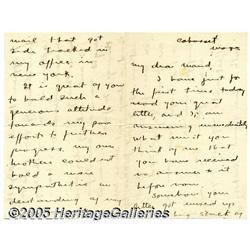 Cohasset
Mass
my dear Maud,
I have just for
the first time today
read your great
letter and I am
answering immediately
what must you
think of me that
you have received
no answer to it
before now.
Somehow your
letter got mixed up
stack of
mail that got
side tracked in
my office in
new york.
It is great of you
to hold such a
generous attitude
towards my poor
efforts to further
progress, my own
mothers could not
hold a more
sympathetic
understanding of my
©2005 HeritageGalleries